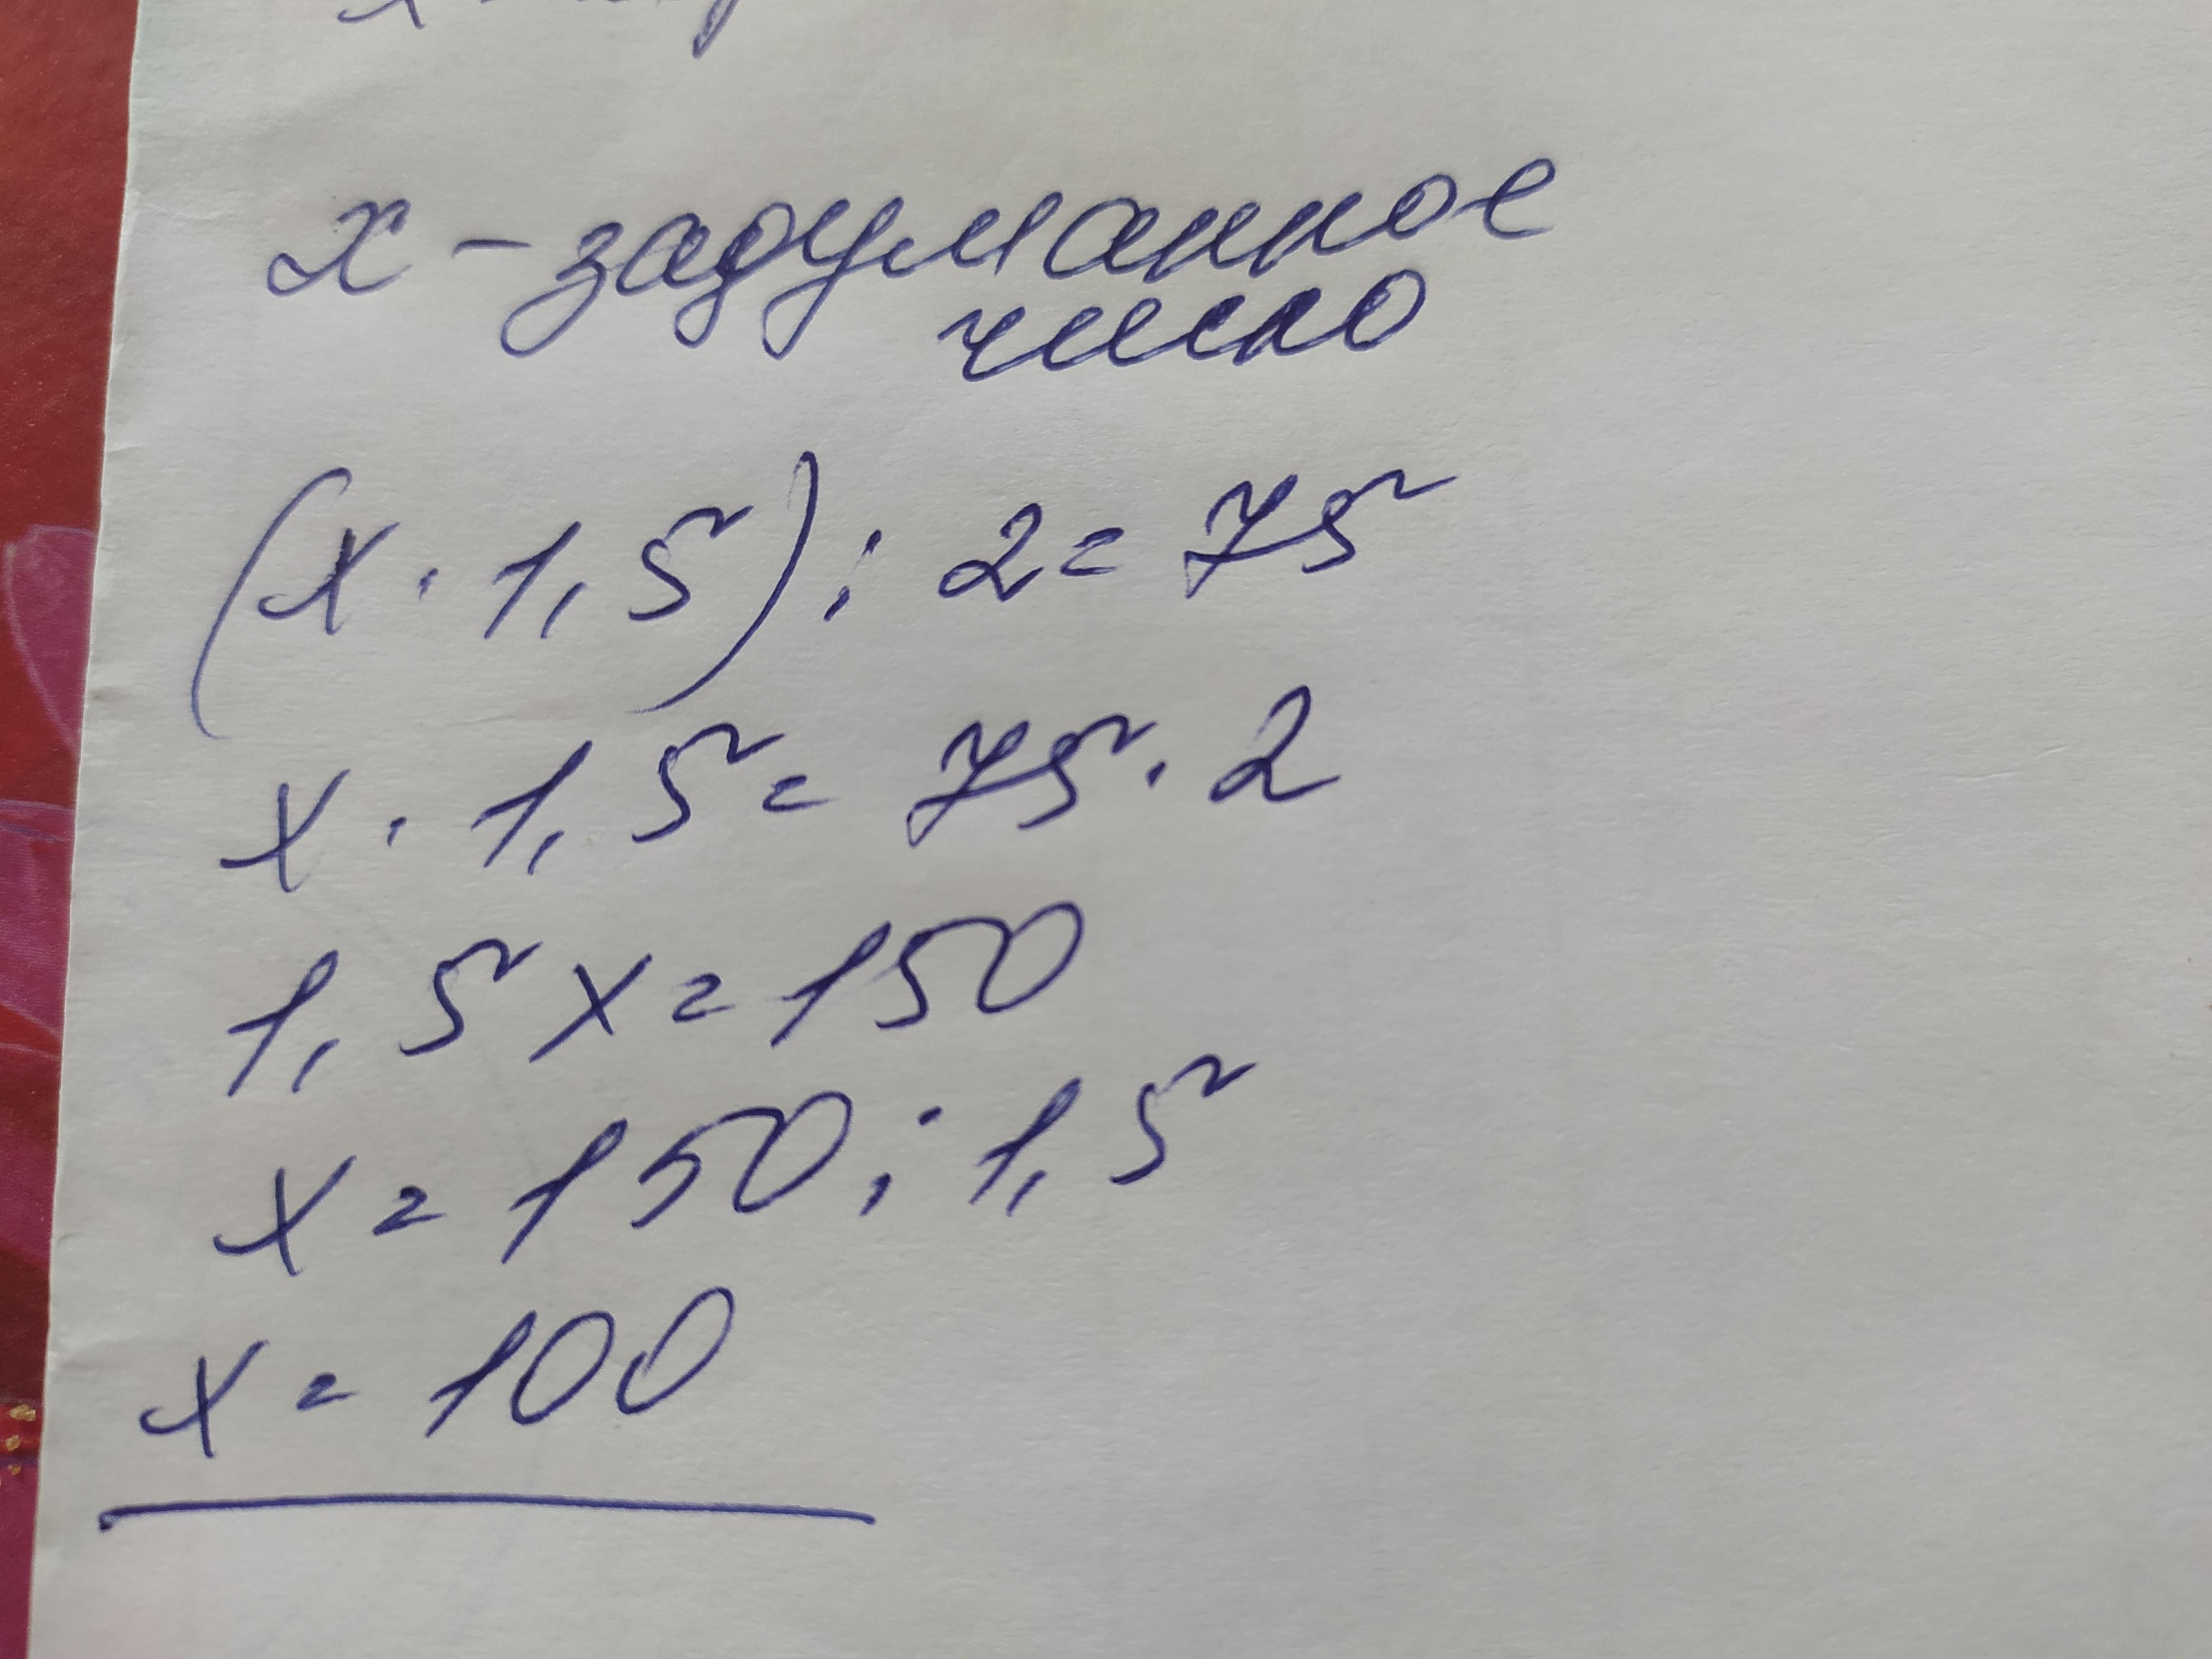 x - задуманное
число
(x · 1,5) : 2 = 75
x · 1,5 = 75 · 2
1,5 x = 150
x = 150 : 1,5
x = 100